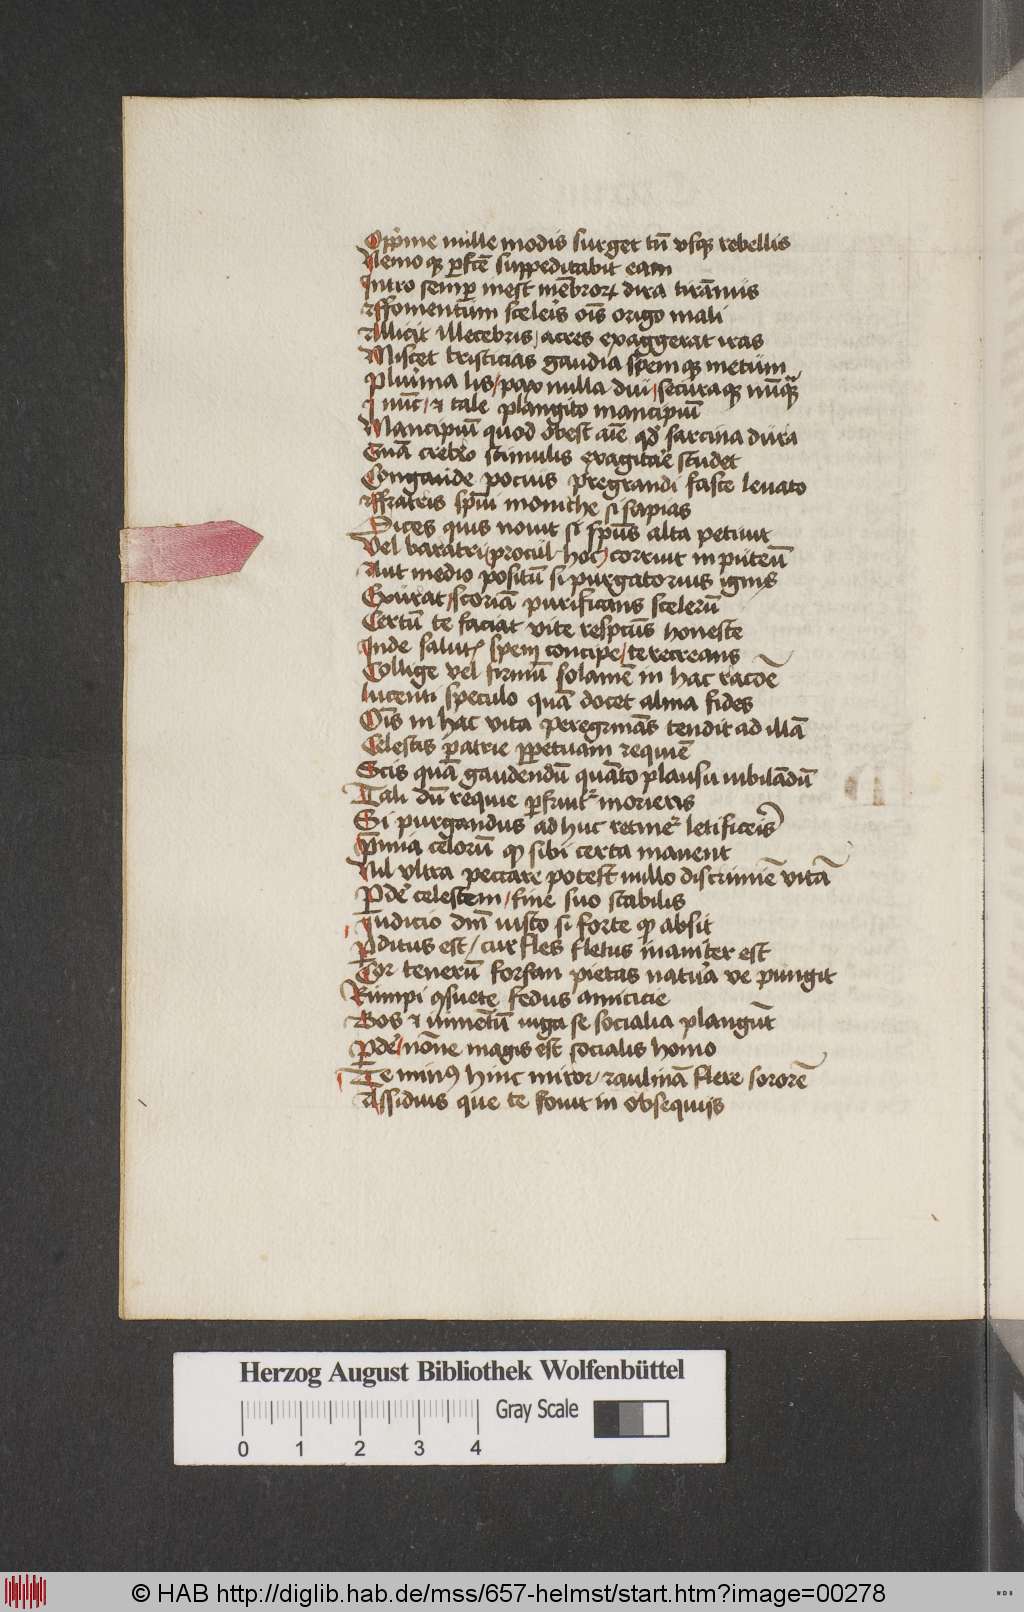 Opp̄me mille modis surget tū vsqꝫ rebellis
Nemo qꝫ ꝑfcē suppeditabit eam
Intro semꝑ inest mēbroꝝ dira tirānis
Effomentum sceleis oīs origo mali
Allicit illecebris acres exaggerat iras
Miscet tristicias gaudia spemqꝫ metum
Pluima lis pax nulla dui securaqꝫ nūqᷓ
I nūc et tale plangito mancipiū
Mancipiū quod obest aīe qd̄ sarcina dura
Quā crebro stimulis exagitare studet
Congaude pocius pregrandi fasce leuato
Effratris spūi moniche si sapias
Dices quis nouit si spūs alta petiuit
Vel baratri procul hoc corruit in puteū
Aut medio positū si purgatorius ignis
Exurat scoriā purificans scelerū
Certū te faciat vite respectus honeste
Inde salutꝭ spem concipe te recreans
Collige vel firmū solamē in hac racōe
lucenti speculo quā docet alma fides
Oīs in hac vita peregrināns tendit ad illā
Celestis patrie ꝑpetuam requiē
Scis quā gaudendū quāto plausu iubilādū
Tali dū requie ꝑfruitᷣ morieris
Si purgandus adhuc retinetᷣ letificeris
Pmia celorū qꝫ sibi certa manent
Nil vltra peccare potest nullo discrimīe vitā
Ꝑde celestem fine suo stabilis
Iudicio dm̄ iusto si forte qꝫ absit
Ꝑditus est cur fles fletus inaniter est
Cor tenerū forsan pietas natura ve pungit
Rumpi ꝯsuete fedus amicicie
Bos et iumētū iuga se socialia plangūt
Ꝑde nōne magis est socialis homo
Te minꝰ hinc miror raulinā flere sororē
Assiduis que te fouit in obsequijs
Herzog August Bibliothek Wolfenbüttel
0 1 2 3 4
Gray Scale
© HAB http://diglib.hab.de/mss/657-helmst/start.htm?image=00278